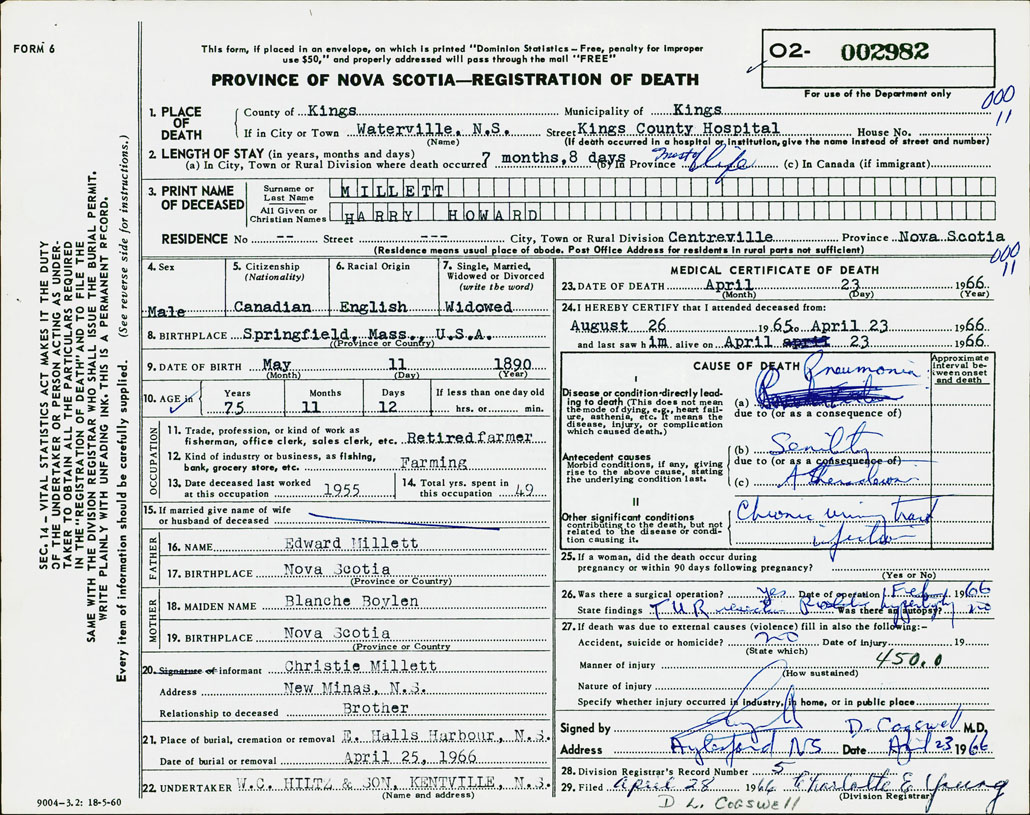 FORM 6
This form, if placed in an envelope, on which is printed "Dominion Statistics – Free, penalty for improper
use $50," and properly addressed will pass through the mail "FREE"
PROVINCE OF NOVA SCOTIA—REGISTRATION OF DEATH
O2- 002982
For use of the Department only
000
11
1. PLACE OF DEATH
County of Kings Municipality of Kings
If in City or Town Waterville, N.S. Street Kings County Hospital House No.
(Name) (If death occurred in a hospital or institution, give the name instead of street and number)
2. LENGTH OF STAY (in years, months and days)
(a) In City, Town or Rural Division where death occurred 7 months, 8 days (b) In Province most of life (c) In Canada (if immigrant)
3. PRINT NAME OF DECEASED
Surname or Last Name MILLETT
All Given or Christian Names HARRY HOWARD
RESIDENCE No -- Street --- City, Town or Rural Division Centreville Province Nova Scotia
(Residence means usual place of abode. Post Office Address for residents in rural parts not sufficient)
000
11
4. Sex
Male
5. Citizenship (Nationality)
Canadian
6. Racial Origin
English
7. Single, Married, Widowed or Divorced (write the word)
Widowed
8. BIRTHPLACE Springfield, Mass., U.S.A.
(Province or Country)
9. DATE OF BIRTH May 11 1890
(Month) (Day) (Year)
10. AGE in Years Months Days If less than one day old
75 11 12 hrs. or min.
OCCUPATION
11. Trade, profession, or kind of work as
fisherman, office clerk, sales clerk, etc. Retired farmer
12. Kind of industry or business, as fishing,
bank, grocery store, etc. Farming
13. Date deceased last worked
at this occupation 1955
14. Total yrs. spent in
this occupation 49
15. If married give name of wife
or husband of deceased
FATHER
16. NAME Edward Millett
17. BIRTHPLACE Nova Scotia
(Province or Country)
MOTHER
18. MAIDEN NAME Blanche Boylen
19. BIRTHPLACE Nova Scotia
(Province or Country
20. Signature of informant Christie Millett
Address New Minas, N.S.
Relationship to deceased Brother
21. Place of burial, cremation or removal E. Halls Harbour, N.S.
Date of burial or removal April 25, 1966
22. UNDERTAKER W.C. HILTZ & SON, KENTVILLE, N.S.
(Name and address)
MEDICAL CERTIFICATE OF DEATH
23. DATE OF DEATH April 23 1966
(Month) (Day) (Year)
24. I HEREBY CERTIFY that I attended deceased from:
August 26 1965 to April 23 1966
and last saw him alive on April april 23 1966
CAUSE OF DEATH
Approximate interval between onset and death
I
Disease or condition directly leading to death (This does not mean
the mode of dying, e.g., heart failure, asthenia, etc. It means the
disease, injury, or complication
which caused death.)
(a) Pneumonia
due to (or as a consequence of)
Antecedent causes
Morbid conditions, if any, giving
rise to the above cause, stating
the underlying condition last.
(b) Senility
due to (or as a consequence of)
(c)
II
Other significant conditions
contributing to the death, but not
related to the disease or condition causing it.
Chronic urinary tract
infection
25. If a woman, did the death occur during
pregnancy or within 90 days following pregnancy?
(Yes or No)
26. Was there a surgical operation? yes Date of operation Feb 1966
State findings T.U.R. Was there an autopsy? no
27. If death was due to external causes (violence) fill in also the following:–
Accident, suicide or homicide? no Date of injury 19
(State which)
Manner of injury 450.0
(How sustained)
Nature of injury
Specify whether injury occurred in industry, in home, or in public place
Signed by D. Cogswell M.D.
Address Aylesford NS Date April 23 1966
28. Division Registrar's Record Number 5
29. Filed April 28 1966 Charlotte E Young
(Division Registrar)
D L. COGSWELL
SEC. 14 – VITAL STATISTICS ACT MAKES IT THE DUTY
OF THE UNDERTAKER OR PERSON ACTING AS UNDERTAKER TO OBTAIN ALL THE PARTICULARS REQUIRED
IN THE "REGISTRATION OF DEATH" AND TO FILE THE
SAME WITH THE DIVISION REGISTRAR WHO SHALL ISSUE THE BURIAL PERMIT.
WRITE PLAINLY WITH UNFADING INK. THIS IS A PERMANENT RECORD.
Every item of information should be carefully supplied. (See reverse side for instructions.)
9004–3.2: 18-5-60